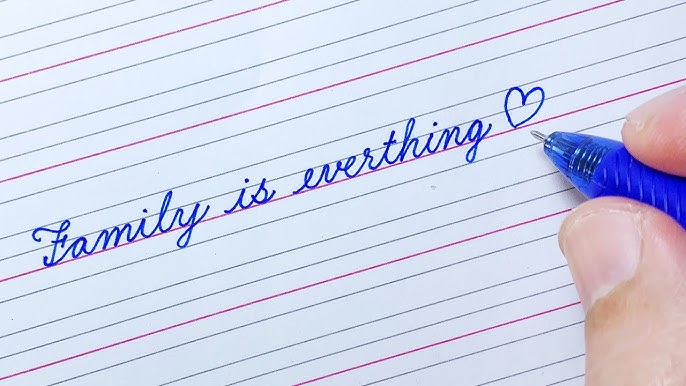 Family is everthing ♡